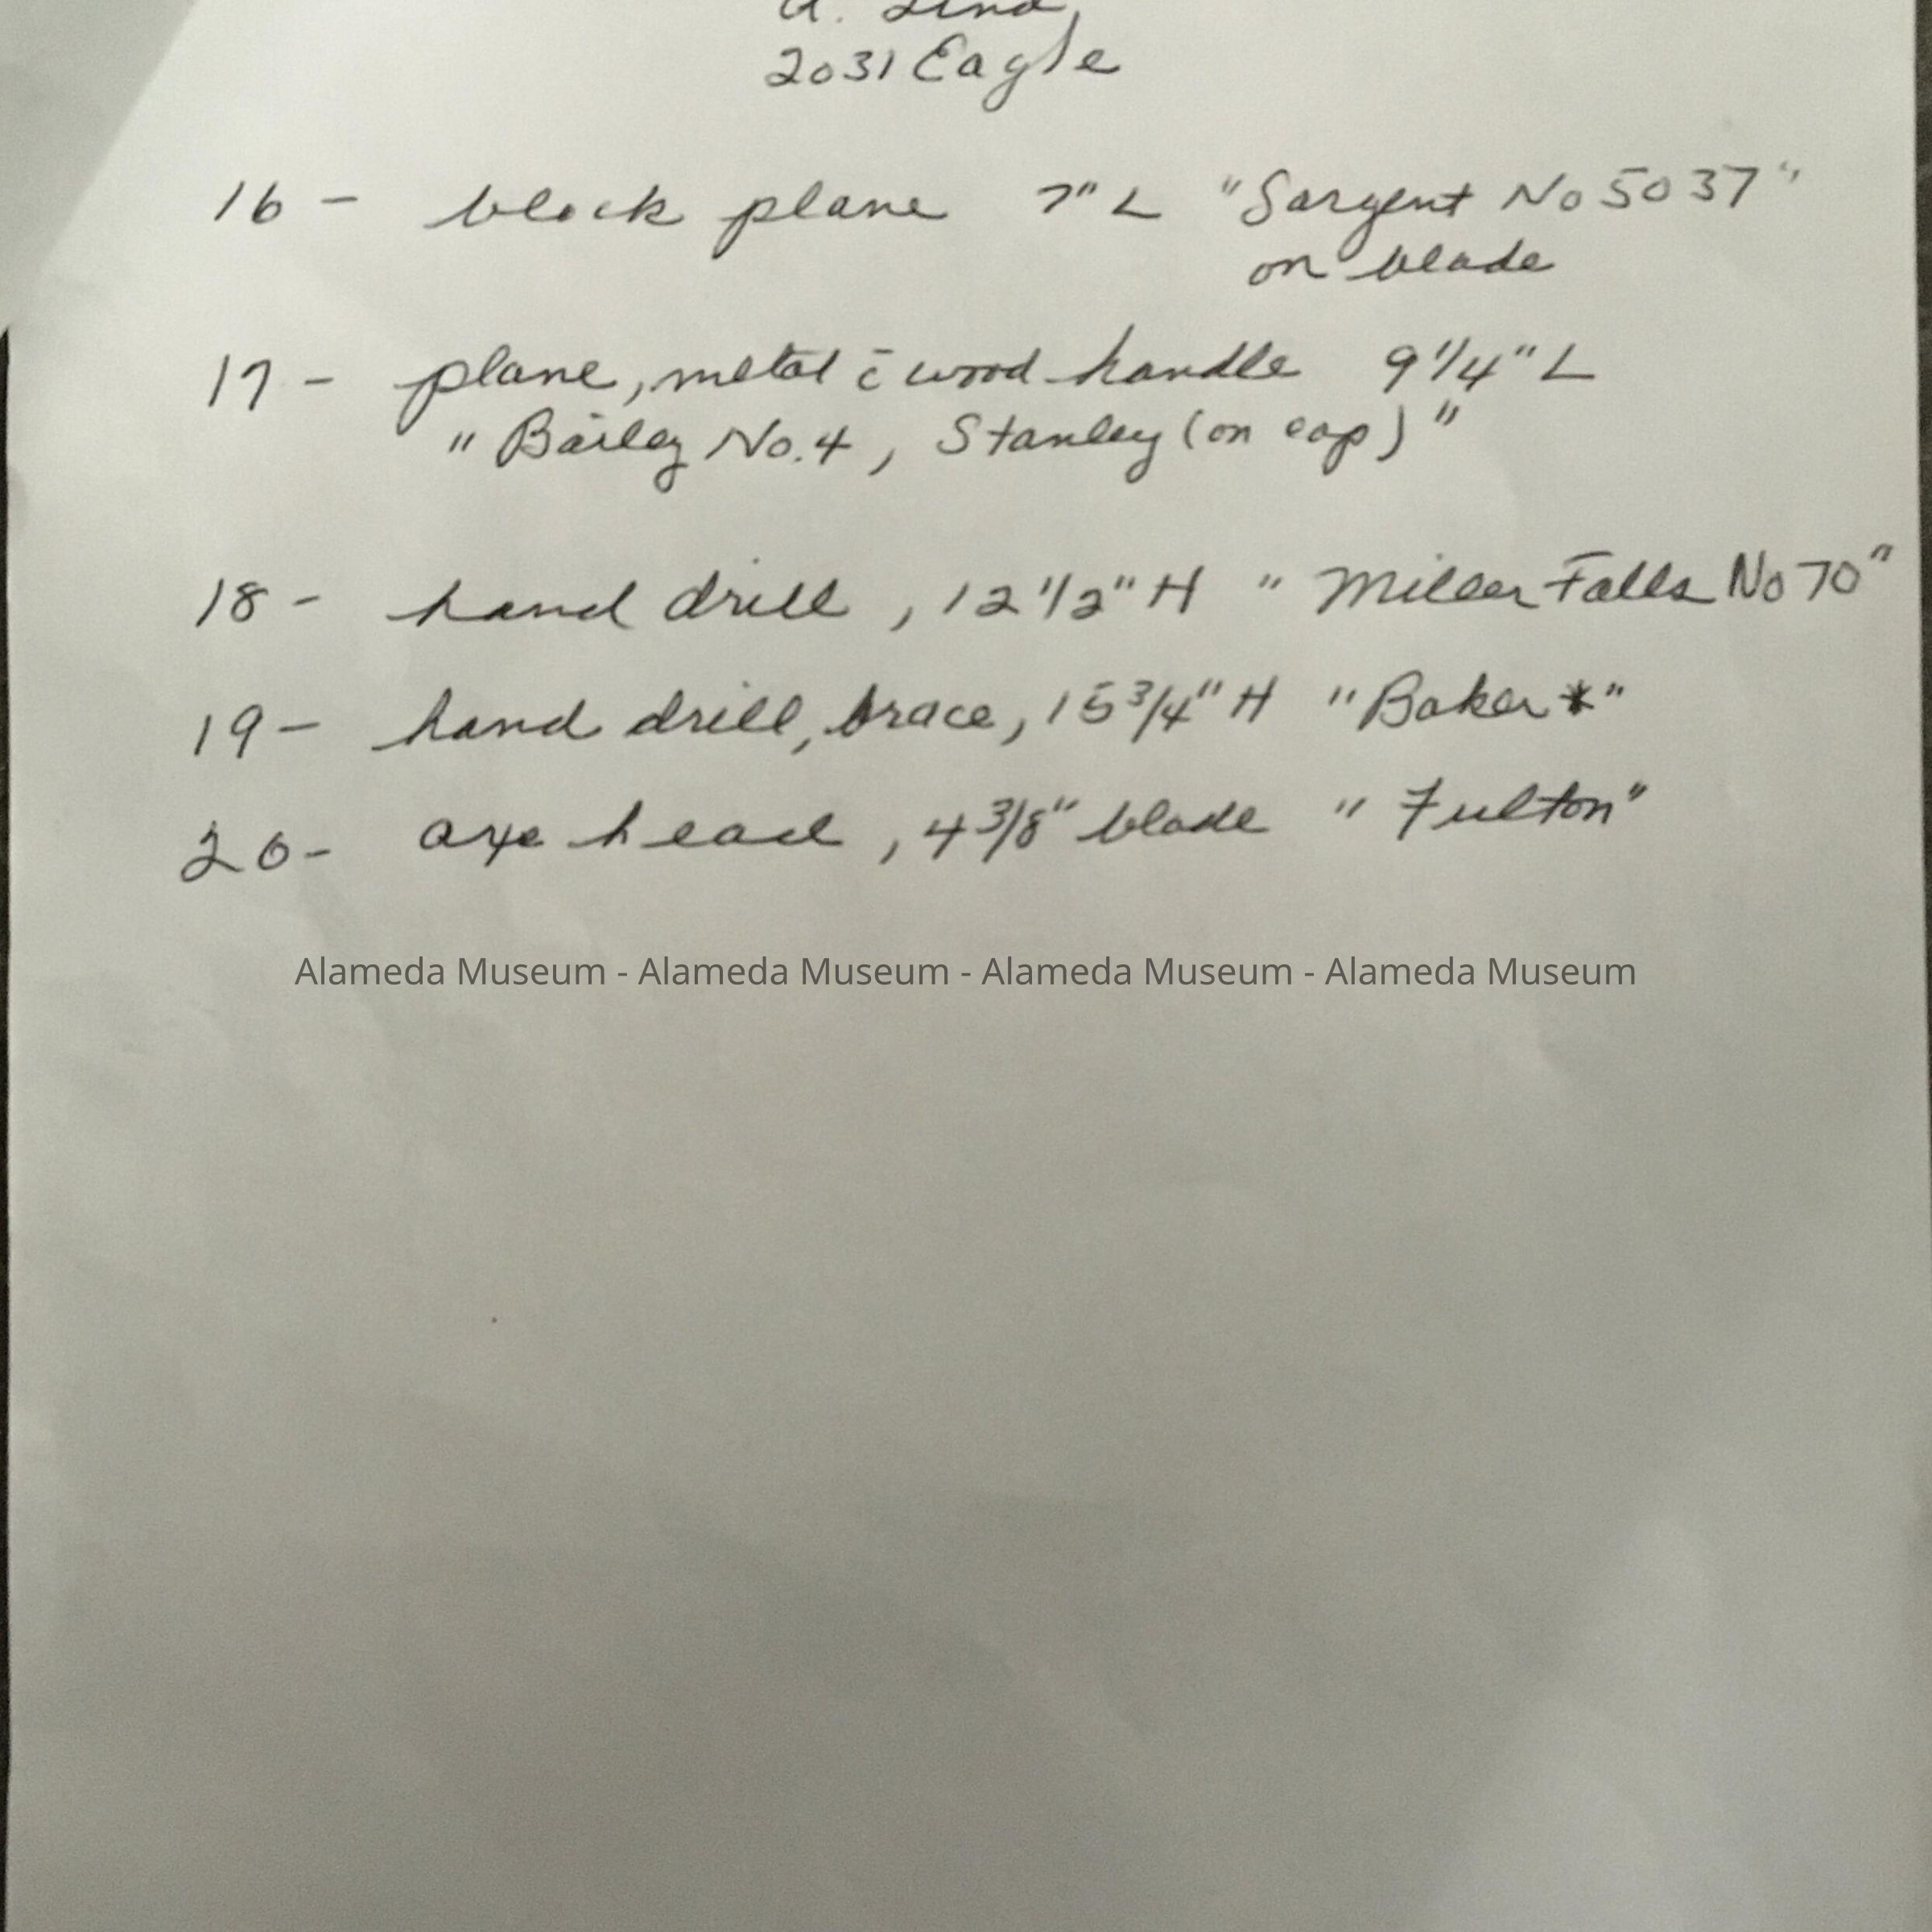 2031 Eagle
16 - block plane 7" L "Sargent No 5037"
on blade
17 - plane, metal c̄ wood handle 9 1/4" L
"Bailey No. 4, Stanley (on cap)"
18 - hand drill, 12 1/2" H "Miller Falls No 70"
19 - hand drill, brace, 15 3/4" H "Baker*"
20 - axe head, 4 3/8" blade "Fulton"
Alameda Museum - Alameda Museum - Alameda Museum - Alameda Museum